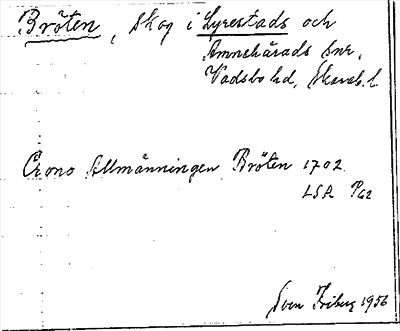 Bröten, skog i Lyrestads och
Amnehärads snr,
Vadsbo hd, Skarab. l
Crono Allmänningen Bröten 1702
LSA P62
Sven Friberg 1956